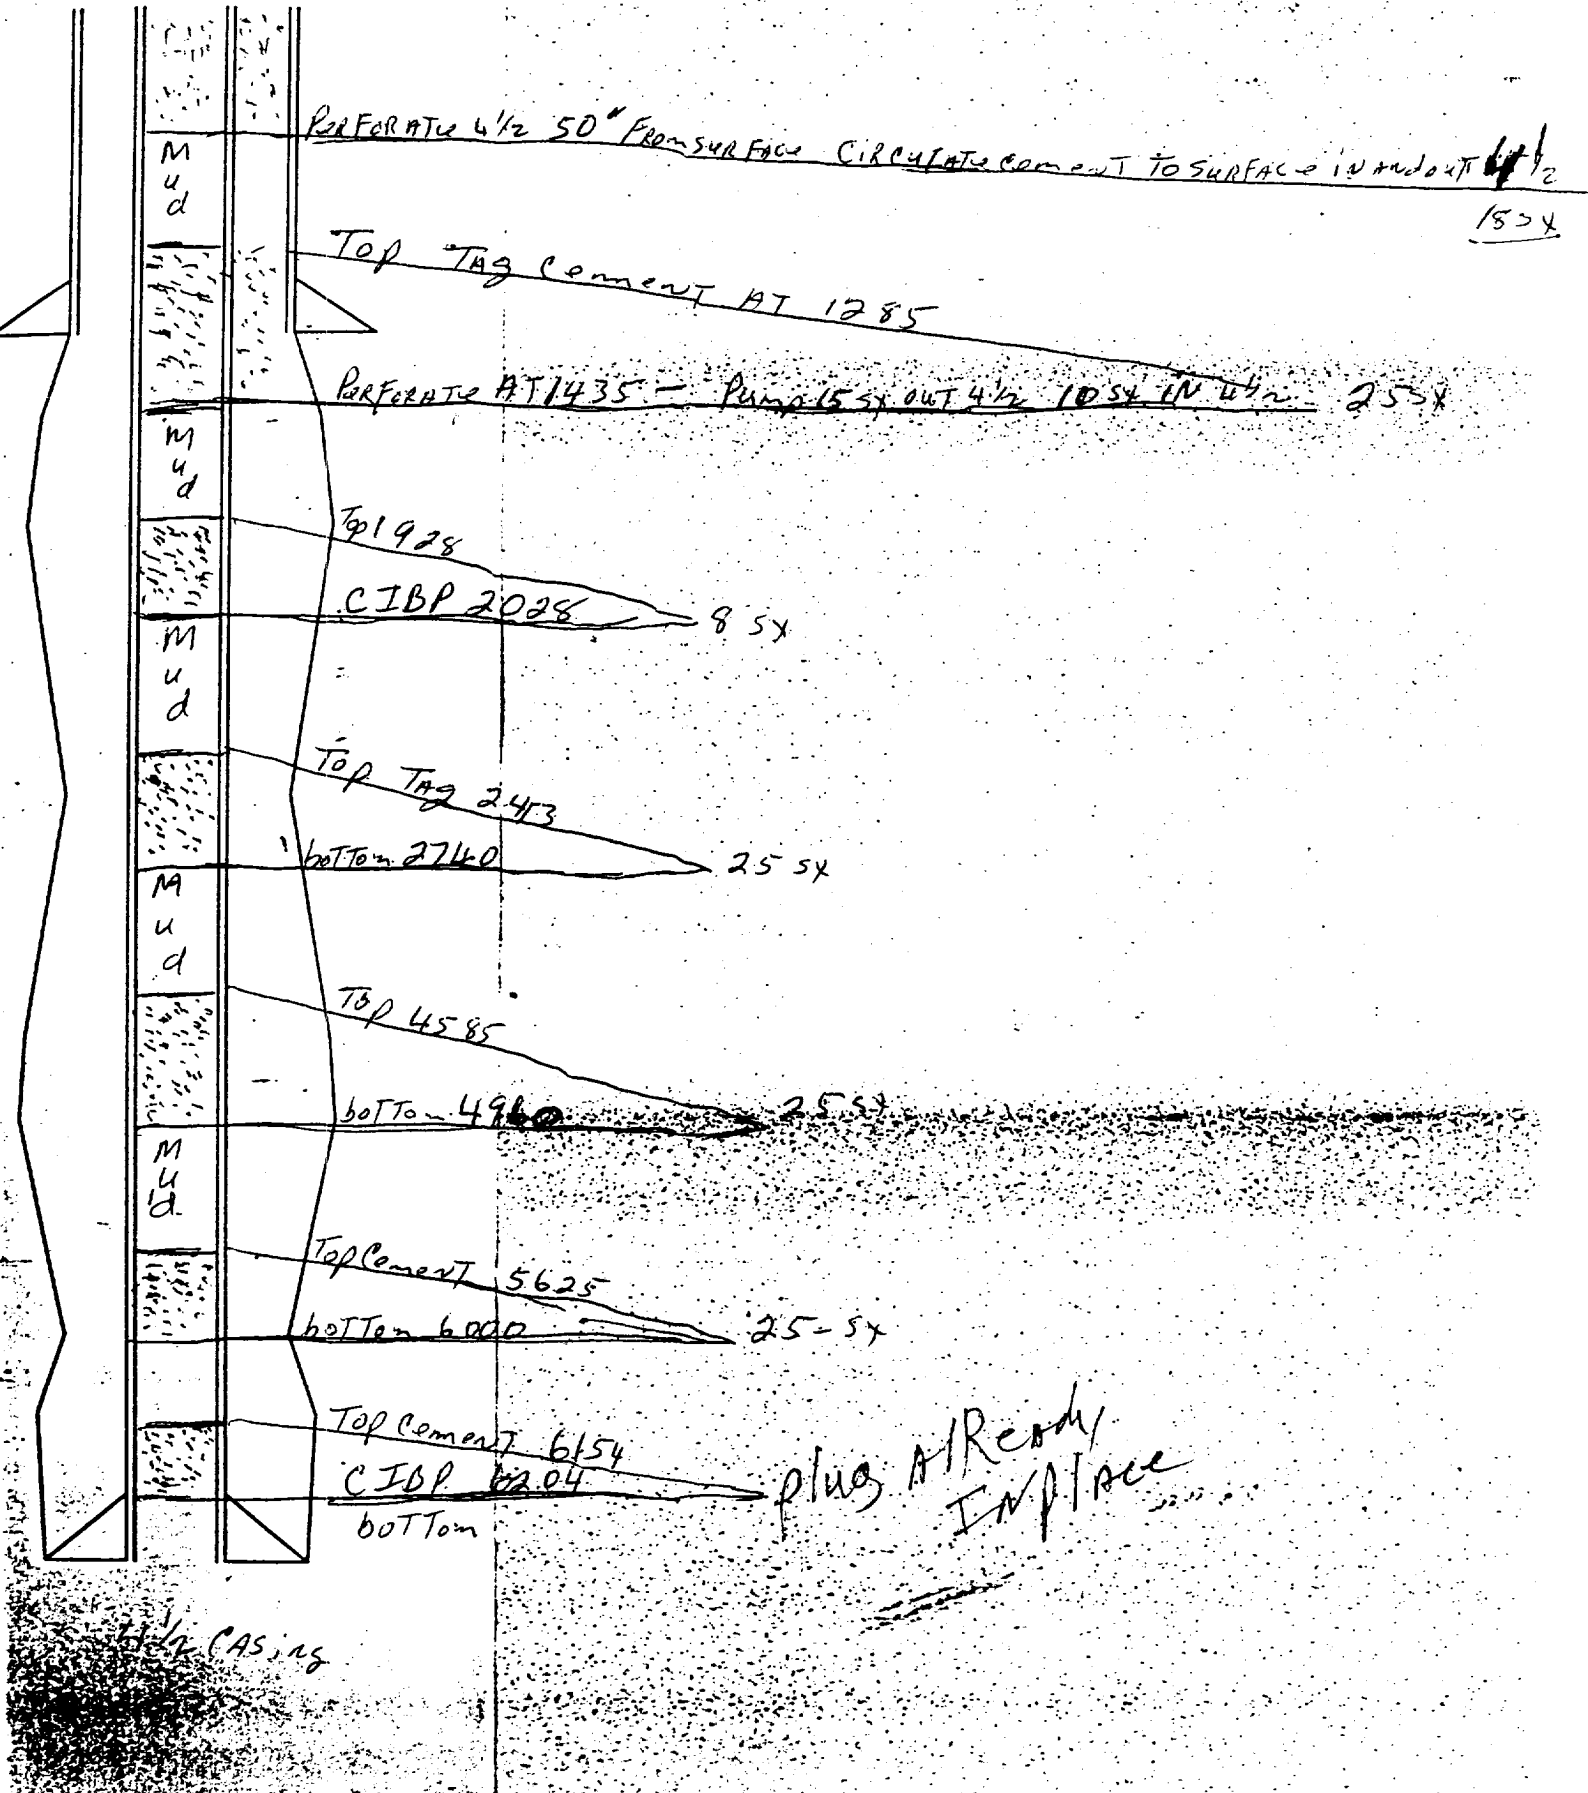 PERFORATe 4 1/2 50" FROM SURFACe CIRCULATe cemenT To SURFACe IN AND ouT 4 1/2
15 sx
M
u
d
Top TAg CemmenT AT 1285
PeRFORATe AT 1435 - Pump 15 sx ouT 4 1/2 10 sx IN 4 1/2 25 sx
M
u
d
Top 1928
CIBP 2028 8 sx
M
u
d
Top TAg 2453
boTTom 2740 25 sx
M
u
d
Top 4585
boTTom 4960 25 sx
M
u
d
Top CemenT 5625
boTTom 6000 25 - sx
Top CemenT 6154
CIBP 6204
boTTom
plug AlReady
INplAce
4 1/2 CASing